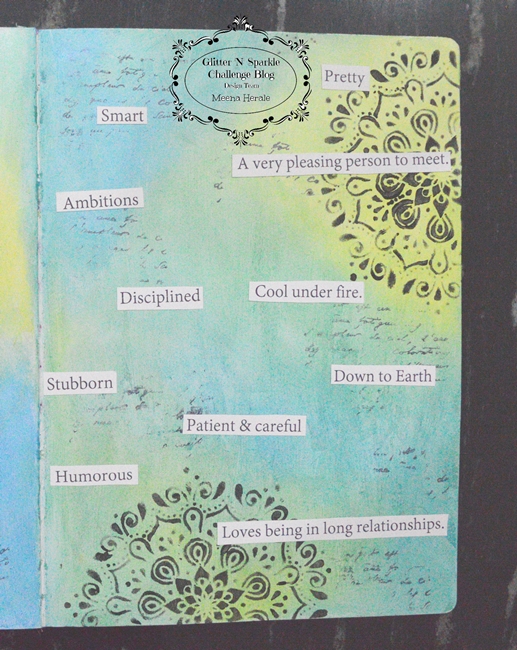 Glitter N Sparkle
Challenge Blog
Design Team
Meena Herale
Pretty
Smart
A very pleasing person to meet.
Ambitions
Disciplined
Cool under fire.
Down to Earth
Stubborn
Patient & careful
Humorous
Loves being in long relationships.